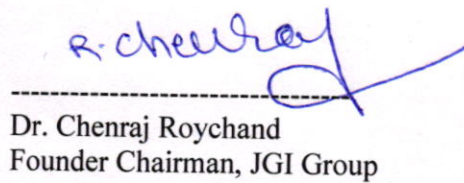 R. Chenraj
Dr. Chenraj Roychand
Founder Chairman, JGI Group